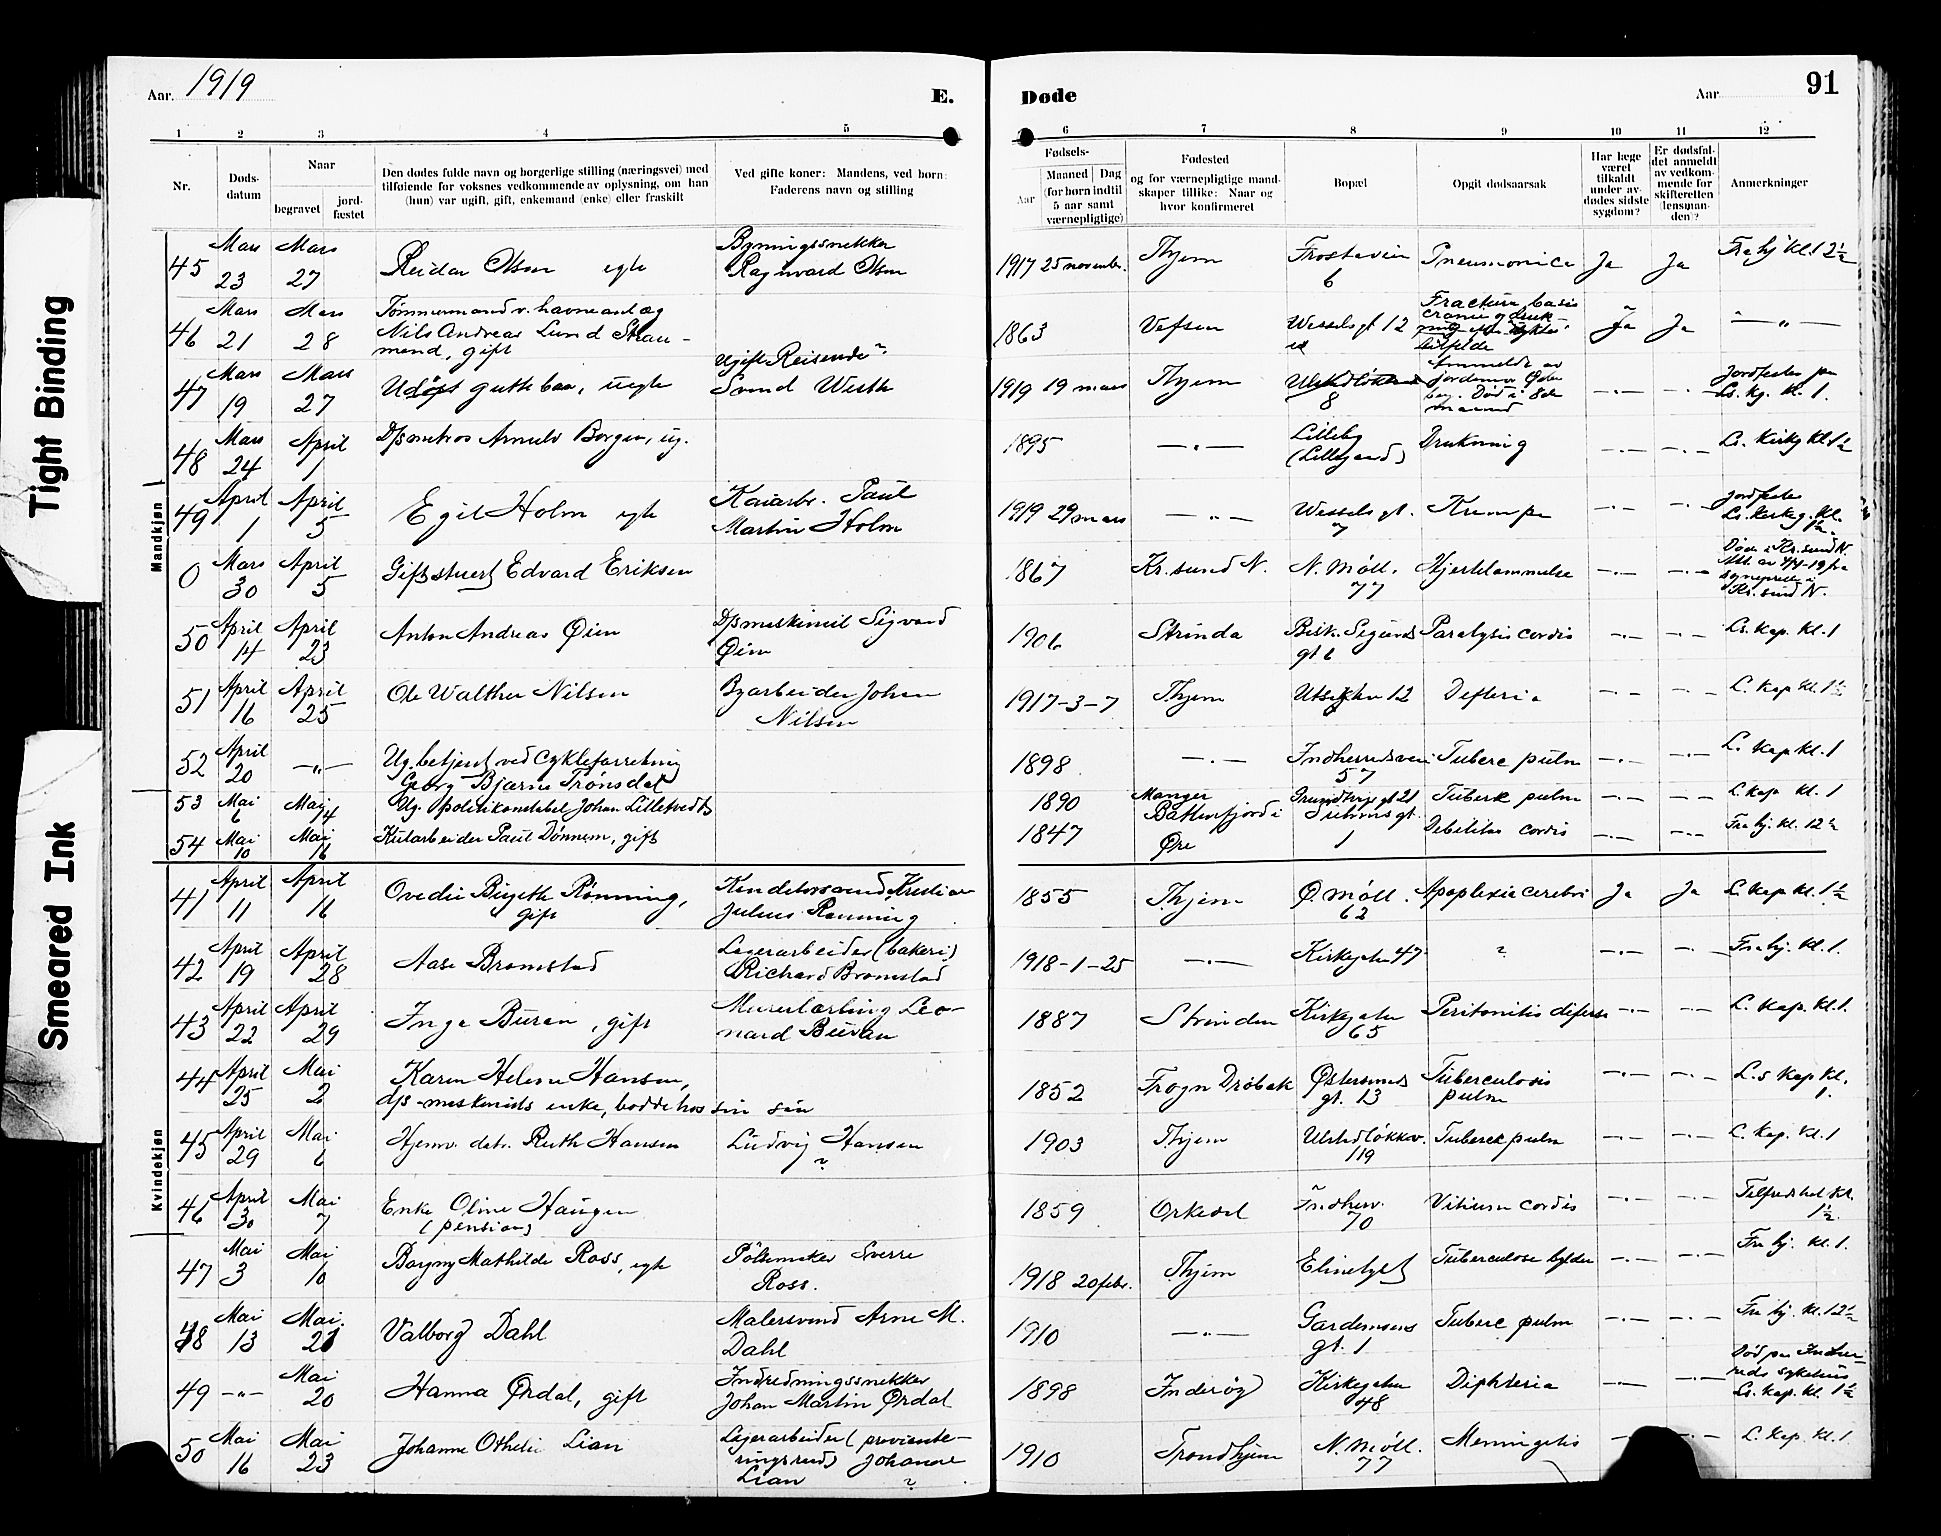 Aar. 1919
E. Døde
Aar
91
1 2 3 4 5 6 7 8 9 10 11 12
Nr.
Døds-
datum
Naar
begravet
jord-
fæstet
Den dødes fulde navn og borgerlige stilling (næringsvei) med
tilføiende for voksnes vedkommende av oplysning, om han
(hun) var ugift, gift, enkemand (enke) eller fraskilt
Ved gifte koner: Mandens, ved børn:
Faderens navn og stilling
Fødsels-
Aar
Maaned Dag
(for børn indtil
5 aar samt
værnepligtige)
Fødested
og for værnepligtige mand-
skaper tillike: Naar og
hvor konfirmeret
Bopæl
Opgit dødsaarsak
Har læge
været
tilkaldt
under av-
dødes sidste
sygdom?
Er dødsfal-
det anmeldt
av vedkom-
mende for
skifteretten
(lensman-
den)?
Anmerkninger
Tight Binding
Smeared Ink
Mandkjøn
45 Mars 23 Mars 27 Reidar Olsen egte Bygningssnekker Ragnvard Olsen 1917 25 novembr. Thjem Frostavein 6 Pneumonica Ja Ja Fra hj kl. 12½
46 Mars 21 Mars 28 Tømmermand v. havneanlæg
Nils Andreas Lund Strau-
mend, gift 1863 Vefsen Wesselsgt 12 Fractura basis cranie Ja Ja —„—
47 Mars 19 Mars 27 Udøpt guttebarn, uegte Ugift Reisende? Sond Westh 1919 19 mars Thjem 8 —.— —.— Jordfestes paa Ls. kg. kl. 1.
48 Mars 24 April 1 D/smatros Arnulv Borgen, ug. 1895 —„— Lilleby (Lillegaard) Drukning —.— —.— Ls. Kirkg kl 1½
49 April 1 April 5 Egil Holm egte Kaiarb. Paul Martin Holm 1919 29 mars —„— Wesselsgt. 7 Krampe —.— —.— Jordfestes Ls. kirkeg. kl. 1½
0 Mars 30 April 5 Gift stuert Edvard Eriksen 1867 Kr.sund N. N. Møll. 77 Hjertelammelse —.— —.— Døde i Kr.sund N. Att. av 4/4-19 fra sogneprest i Kr.sund N.
50 April 14 April 23 Anton Andreas Øien D/smaskinist Sigvard Øien 1906 Strinda Bisk. Sigurds gt 6 Paralysis cordis —.— —.— Ls. kap. kl. 1
51 April 16 April 25 Ole Walther Nilsen Byarbeider Johan Nilsen 1917-3-7 Thjem 12 Defteria —.— —.— L. Kap kl. 1½
52 April 20 —„— Ug. betjent ved cykleforretning
Georg Bjarne Trønsdal 1898 —.— Indherredsvei 57 Tuberc pulm —.— L. Kap kl. 1
53 Mai 6 Maj 14 Ug. politikonstabel Johan Lilletvedt 1890 Manger Tuberk pulm —.— —.— L. kap kl. 1
54 Mai 10 Mai 16 Kularbeider Paul Dønnem, gift 1847 Battenfjord i Øre 1 Debilitas cordis —.— —.— Fra hj. kl. 12½
Kvindekjøn
41 April 11 April 16 Ovedie Birgethe Rønning, gift Kristian Julius Rønning 1855 Thjem Ø. Møll. 62 Apoplexia cerebri Ja Ja L. kap kl. 1½
42 April 19 April 28 Aase Bromstad Lagerarbeider (bakeri) Richard Bromstad 1918-1-25 —.— Kirkegaten 47 ? —.— —.— Fra hj. kl. 1.
43 April 22 April 29 Inga Buran, gift Murerlærling Leo-
nard Buran 1887 Strinden Kirkegaten 65 Peritonitis difusa —.— —.— L. Kap. kl. 1.
44 April 25 Mai 2 Karen Helene Hansen,
d/s-maskinists enke, bodde hos sin søn 1852 Frogn Drøbak Østersunds gt. 13 Tuberculosis pulm —.— —.— L.s kap kl. 1.
45 April 29 Mai 6 Hjemv. datr. Ruth Hansen Ludvig Hansen ? 1903 Thjem Ulstadløkkv. 119 Tuberck pulm —.— —.— L. Kap. kl. 1
46 April 30 Mai 7 Enke Oline Haugen
(pension) 1859 Orkedal Indherv. 70 Vitium cordis —.— —.— Tilfredshet kl. 1½.
47 Mai 3 Mai 10 Borgny Mathilde Ross, egte Pølsemaker Sverre Ross. 1918 20 febr. Thjem Elinelyst Tuberculose bylder —.— —.— Fra hj. kl. 1.
48 Mai 13 Mai. 21 Valborg Dahl Malersvend Arne M. Dahl 1910 —„— Gardemoens gt. 1 Tuberc pulm —.— —.— Fra hj. kl. 12½
49 —„— Mai 20 Hanna Ørdal, gift Indredningssnekker Johan Martin Ørdal 1898 Inderøy Kirkegaten 48 Diphteria —.— —.— Død paa Indher-
reds sykehus
Ls. kap. kl. 1½
50 Mai 16 Mai 23 Johanne Othelie Lian Lagerarbeider (proviante-
ringsraad) Johannes Lian ? 1910 Trondhjem N. Møll. 77 Meningitis — —.— L. kap. kl. 1